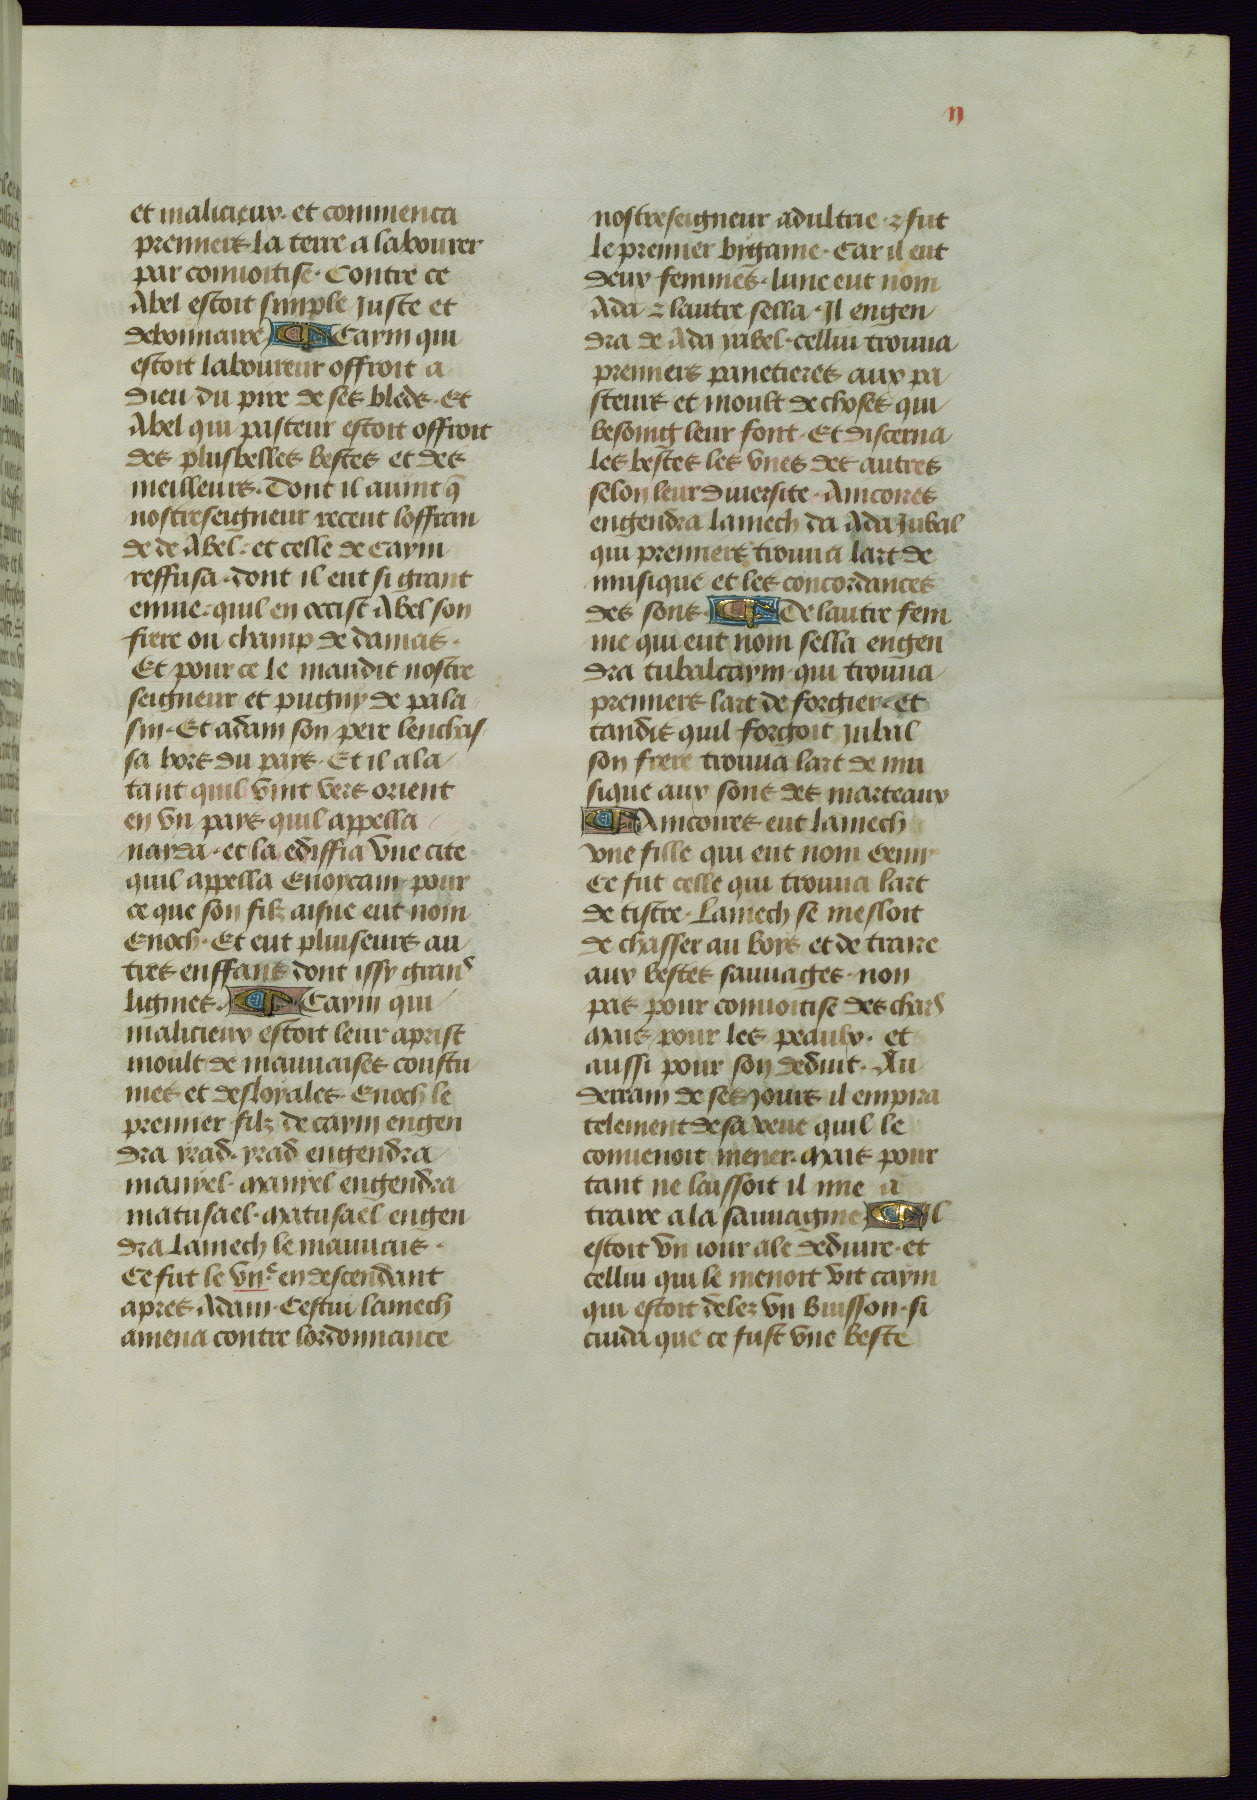 ii
et malicieux. et commenca
premiers la terre a labourer
par conuoitise. Contre ce
Abel estoit simple Juste et
debonnaire Caym qui
estoit laboureur offroit a
dieu du pire de ses bledz. Et
Abel qui pasteur estoit offroit
des plus belles bestes et des
meilleurs. Dont il auint q̄
nostreseigneur receut loffran
de de Abel. et celle de Caym
reffusa. dont il eut si grant
enuie. quil en occist Abel son
frere ou champ de damas.
Et pour ce le maudit nostre
seigneur et pugny de pala
sin. Et adam son pere lenchas
sa hors du pays. Et il ala
tant quil vint vers orient
en vn pays quil appella
nayda. et la ediffia vne cite
quil appella Enoycam pour
ce que son filz aisne eut nom
Enoch. Et eut pluiseurs au
tres enffans dont issy grand
lignies. Caym qui
malicieux estoit leur aprist
moult de mauuaises coustu
mes et desloyales. Enoch le
premier filz de caym engen
dra yrad. yrad engendra
mauyel. Mauyel engendra
matusael. Matusael engen
dra Lamech le mauuais.
Ce fut le viie en descendant
apres Adam. Cestui lamech
amena contre lordonnance
nostreseigneur adultrie. ⁊ fut
le premier bygame. Car il eut
deux femmes. lune eut nom
Ada ⁊ lautre sella. Il engen
dra de Ada yabel. cellui trouua
premiers panetieres aux pa
steurs et moult de choses qui
besoing leur font. Et discerna
les bestes les vnes des autres
selon leur diuersite. Aincores
engendra lamech da Ada Jubal
qui premiers trouua lart de
musique et les concordances
des sons. De lautre fem
me qui eut nom sella engen
dra tubalcaym. qui trouua
premiers lart de forgier. et
tandis quil forgoit Jubal
son frere trouua lart de mu
sique aux sons des marteaux
Aincores eut lamech
vne fille qui eut nom
Ce fut celle qui trouua lart
de tistre. Lamech se mesloit
de chasser au boys et de traire
aux bestes sauuages. non
pas pour conuoitise des chars
Mais pour les peaulx. et
aussi pour son deduit. Au
derrain de ses Jours il empira
telement de sa veue quil le
conuenoit mener. Mais pour
tant ne laissoit il mie a
traire a la sauuagine Il
estoit vn iour ale deduire. et
cellui qui le menoit vit caym
qui estoit delez vn buisson. si
cuida que ce fust vne beste